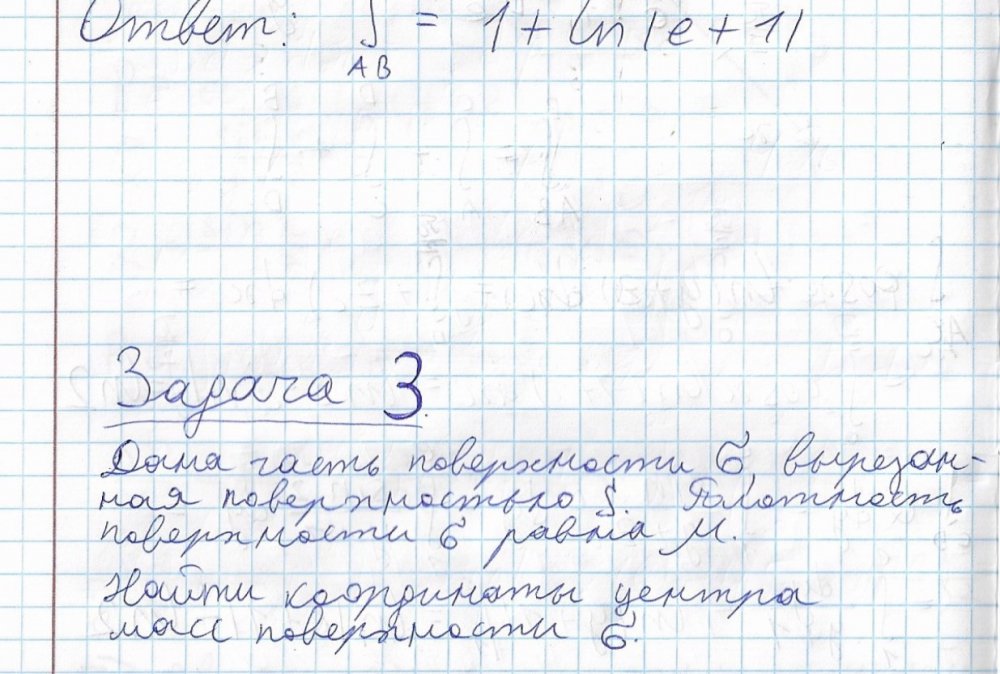 Ответ: ∫ = 1 + ln|e + 1|
AB
Задача 3.
Дана часть поверхности σ, вырезан-
ная поверхностью S. Плотность
поверхности σ равна μ.
Найти координаты центра
масс поверхности σ.